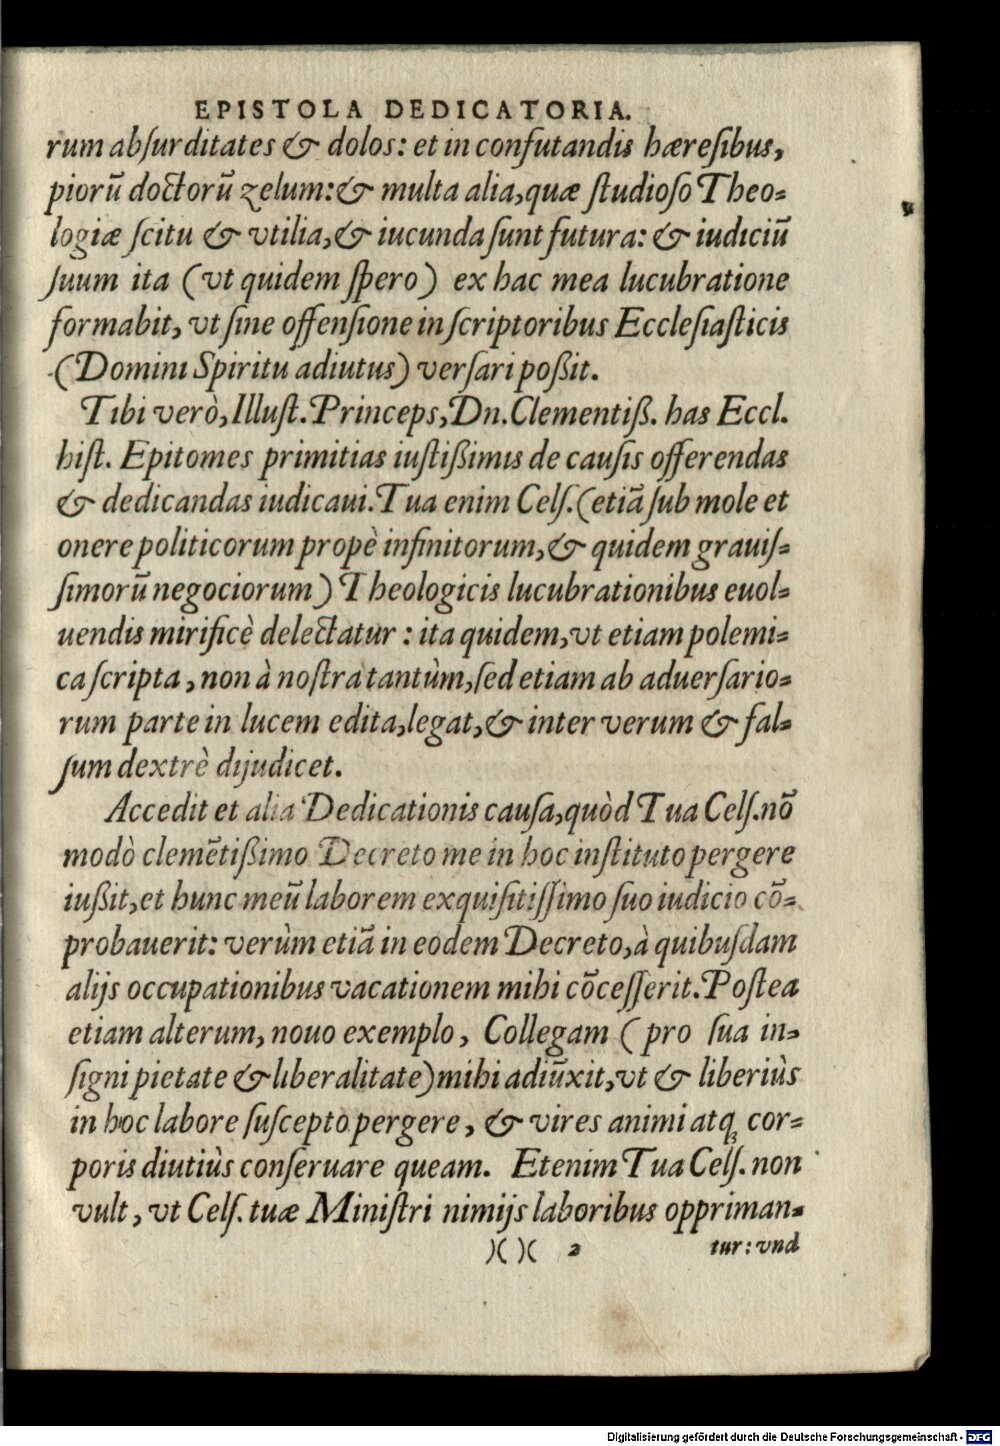 EPISTOLA DEDICATORIA.
rum abſurditates & dolos: et in confutandis hæreſibus,
piorū doctorū zelum: & multa alia, quæ ſtudioſo Theo-
logiæ ſcitu & vtilia, & iucunda ſunt futura: & iudiciū
ſuum ita (vt quidem ſpero) ex hac mea lucubratione
formabit, vt ſine offenſione in ſcriptoribus Eccleſiaſticis
(Domini Spiritu adiutus) verſari poßit.
Tibi verò, Illuſt. Princeps, Dn. Clementiß. has Eccl.
hiſt. Epitomes primitias iuſtißimis de cauſis offerendas
& dedicandas iudicaui. Tua enim Celſ. (etiā ſub mole et
onere politicorum propè infinitorum, & quidem grauiſ-
ſimorū negociorum) Theologicis lucubrationibus euol-
uendis mirificè delectatur: ita quidem, vt etiam polemi-
ca ſcripta, non à noſtra tantùm, ſed etiam ab aduerſario-
rum parte in lucem edita, legat, & inter verum & fal-
ſum dextrè dijudicet.
Accedit et alia Dedicationis cauſa, quòd Tua Celſ. nō
modò clemētißimo Decreto me in hoc inſtituto pergere
iußit, et hunc meū laborem exquiſitiſſimo ſuo iudicio cō-
probauerit: verùm etiā in eodem Decreto, à quibuſdam
alijs occupationibus vacationem mihi cōceſſerit. Poſtea
etiam alterum, nouo exemplo, Collegam (pro ſua in-
ſigni pietate & liberalitate) mihi adiūxit, vt & liberiùs
in hoc labore ſuſcepto pergere, & vires animi atq; cor-
poris diutiùs conſeruare queam. Etenim Tua Celſ. non
vult, vt Celſ. tuæ Miniſtri nimijs laboribus oppriman-
)( )( 2 tur: vnd
Digitalisierung gefördert durch die Deutsche Forschungsgemeinschaft - DFG